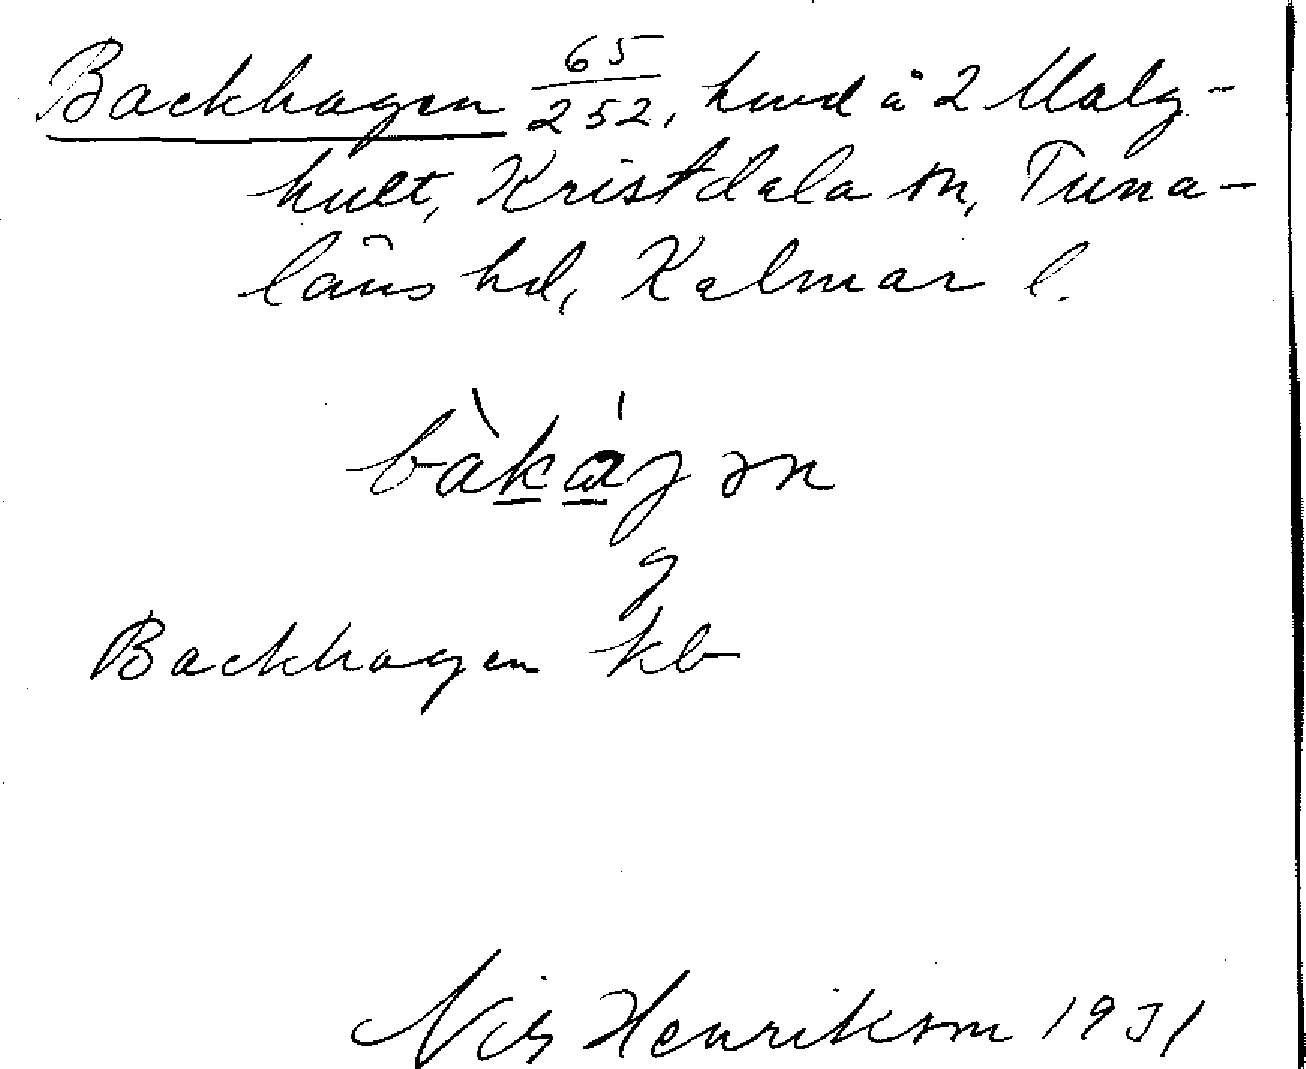 Backhagen 65/252, hmd å 2 Malg-
hult, Kristdala sn, Tuna-
läns hd, Kalmar l.
bàkágən
g
Backhagen kb
Nils Henrikson 1931